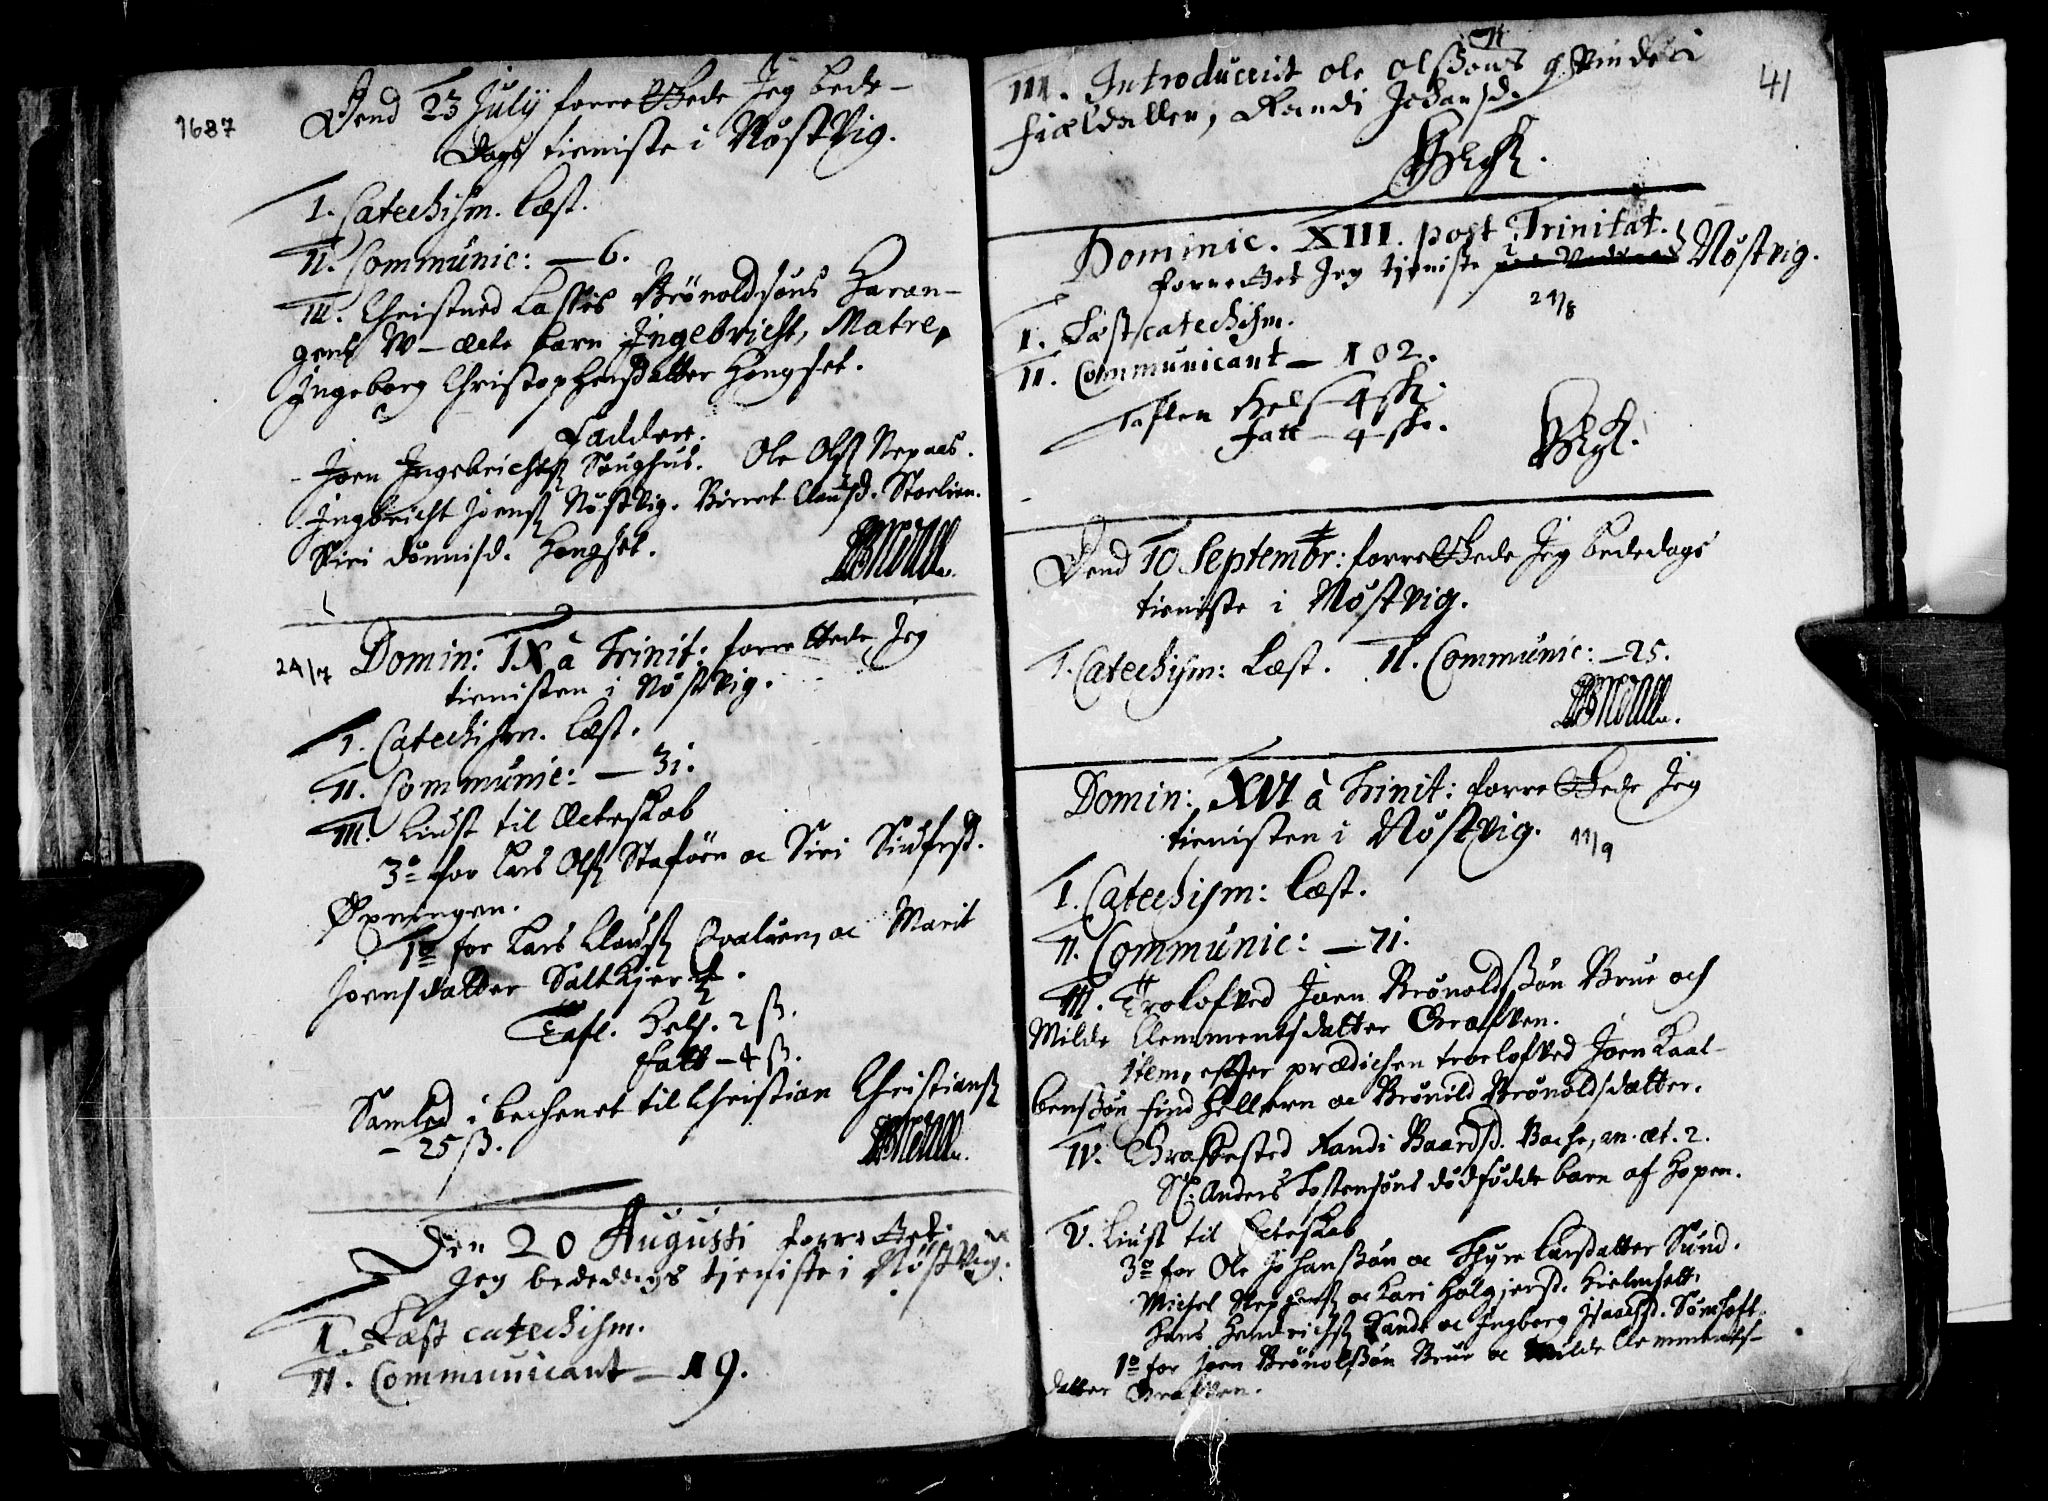 1687
Dend 23 Julij forrettede Jeg bede-
dags tieniste i Nøstvig.
I. Catechism. læst.
II. Communic: — 6.
III. Christned Lasses Brønoldsøns Haran-
gens W-ecte barn Ingebricht, Matre,
Ingeborg Christophersdatter Hongset.
Faddere.
Joen Ingebrichts Ole Ols Nepaas.
Ingbricht Joens Nøstvig. Birret Clausd. Stoelien.
Siri Dønnisd. Hongset.
24/7 Domin: IX à Trinit: forrettede Jeg
tienisten i Nøstvig.
I. Catechism. læst.
II. Communic: — 31.
III. Liust til Ecteskab
3o for Lars Ols Staføen oc Siri Siufrsd.
Øpningen.
1o for Lars Claus oc Marit
Joensdatter Saltkjer
Tafl. Hels. 2 ß.
Fatt — 4 ß.
Samled i bechenet til Christian Christians
— 25 ß.
Den 20 Augusti forrettet
Jeg bededags tjeniste i Nøstvig.
I. Læst catechism.
II. Communicant — 19.
41
III. Introducerit Ole Olßøns qvinde i
Fieldaller, Randi Johansd.
Dominic. XIII. post Trinitat.
forrettet Jeg tjeniste i Nøstvig.
21/8
I. Læst catechism.
II. Communicant — 102.
Taflen Hels 4 sk.
Fatt — 4 sk.
Dend 10 Septembr: forrettede Jeg bededags
tieniste i Nøstvig.
I. Catechism: læst. II. Communic: — 25.
Domin: XVI à Trinit: forrettede Jeg
tienisten i Nøstvig. 11/9
I. Catechism: læst.
II. Communic: — 71.
III. Trolofved Joen Brønoldßøn Brue och
Milde Clemmentsdatter Grafven.
Item, efter prædichen troelofved Joen Kaal-
benßøn Findhellern oc Brønild Brønoldsdatter.
IV. Grafested Randi Baardsd. Bache, an. æt. 2.
Sl: Anders Tostensøns dødfødde barn af Hopen.
V. Liust til Ecteskab
3o for Ole Johanßøn oc Thyre Larsdatter Sund.
Michel oc Kari Holgjersd.
Hans Hendrichs Sande oc Ingborg Isaachsd.
1o for Joen Brønolßøn Brue oc Milde Clemments-
datter Grafven.